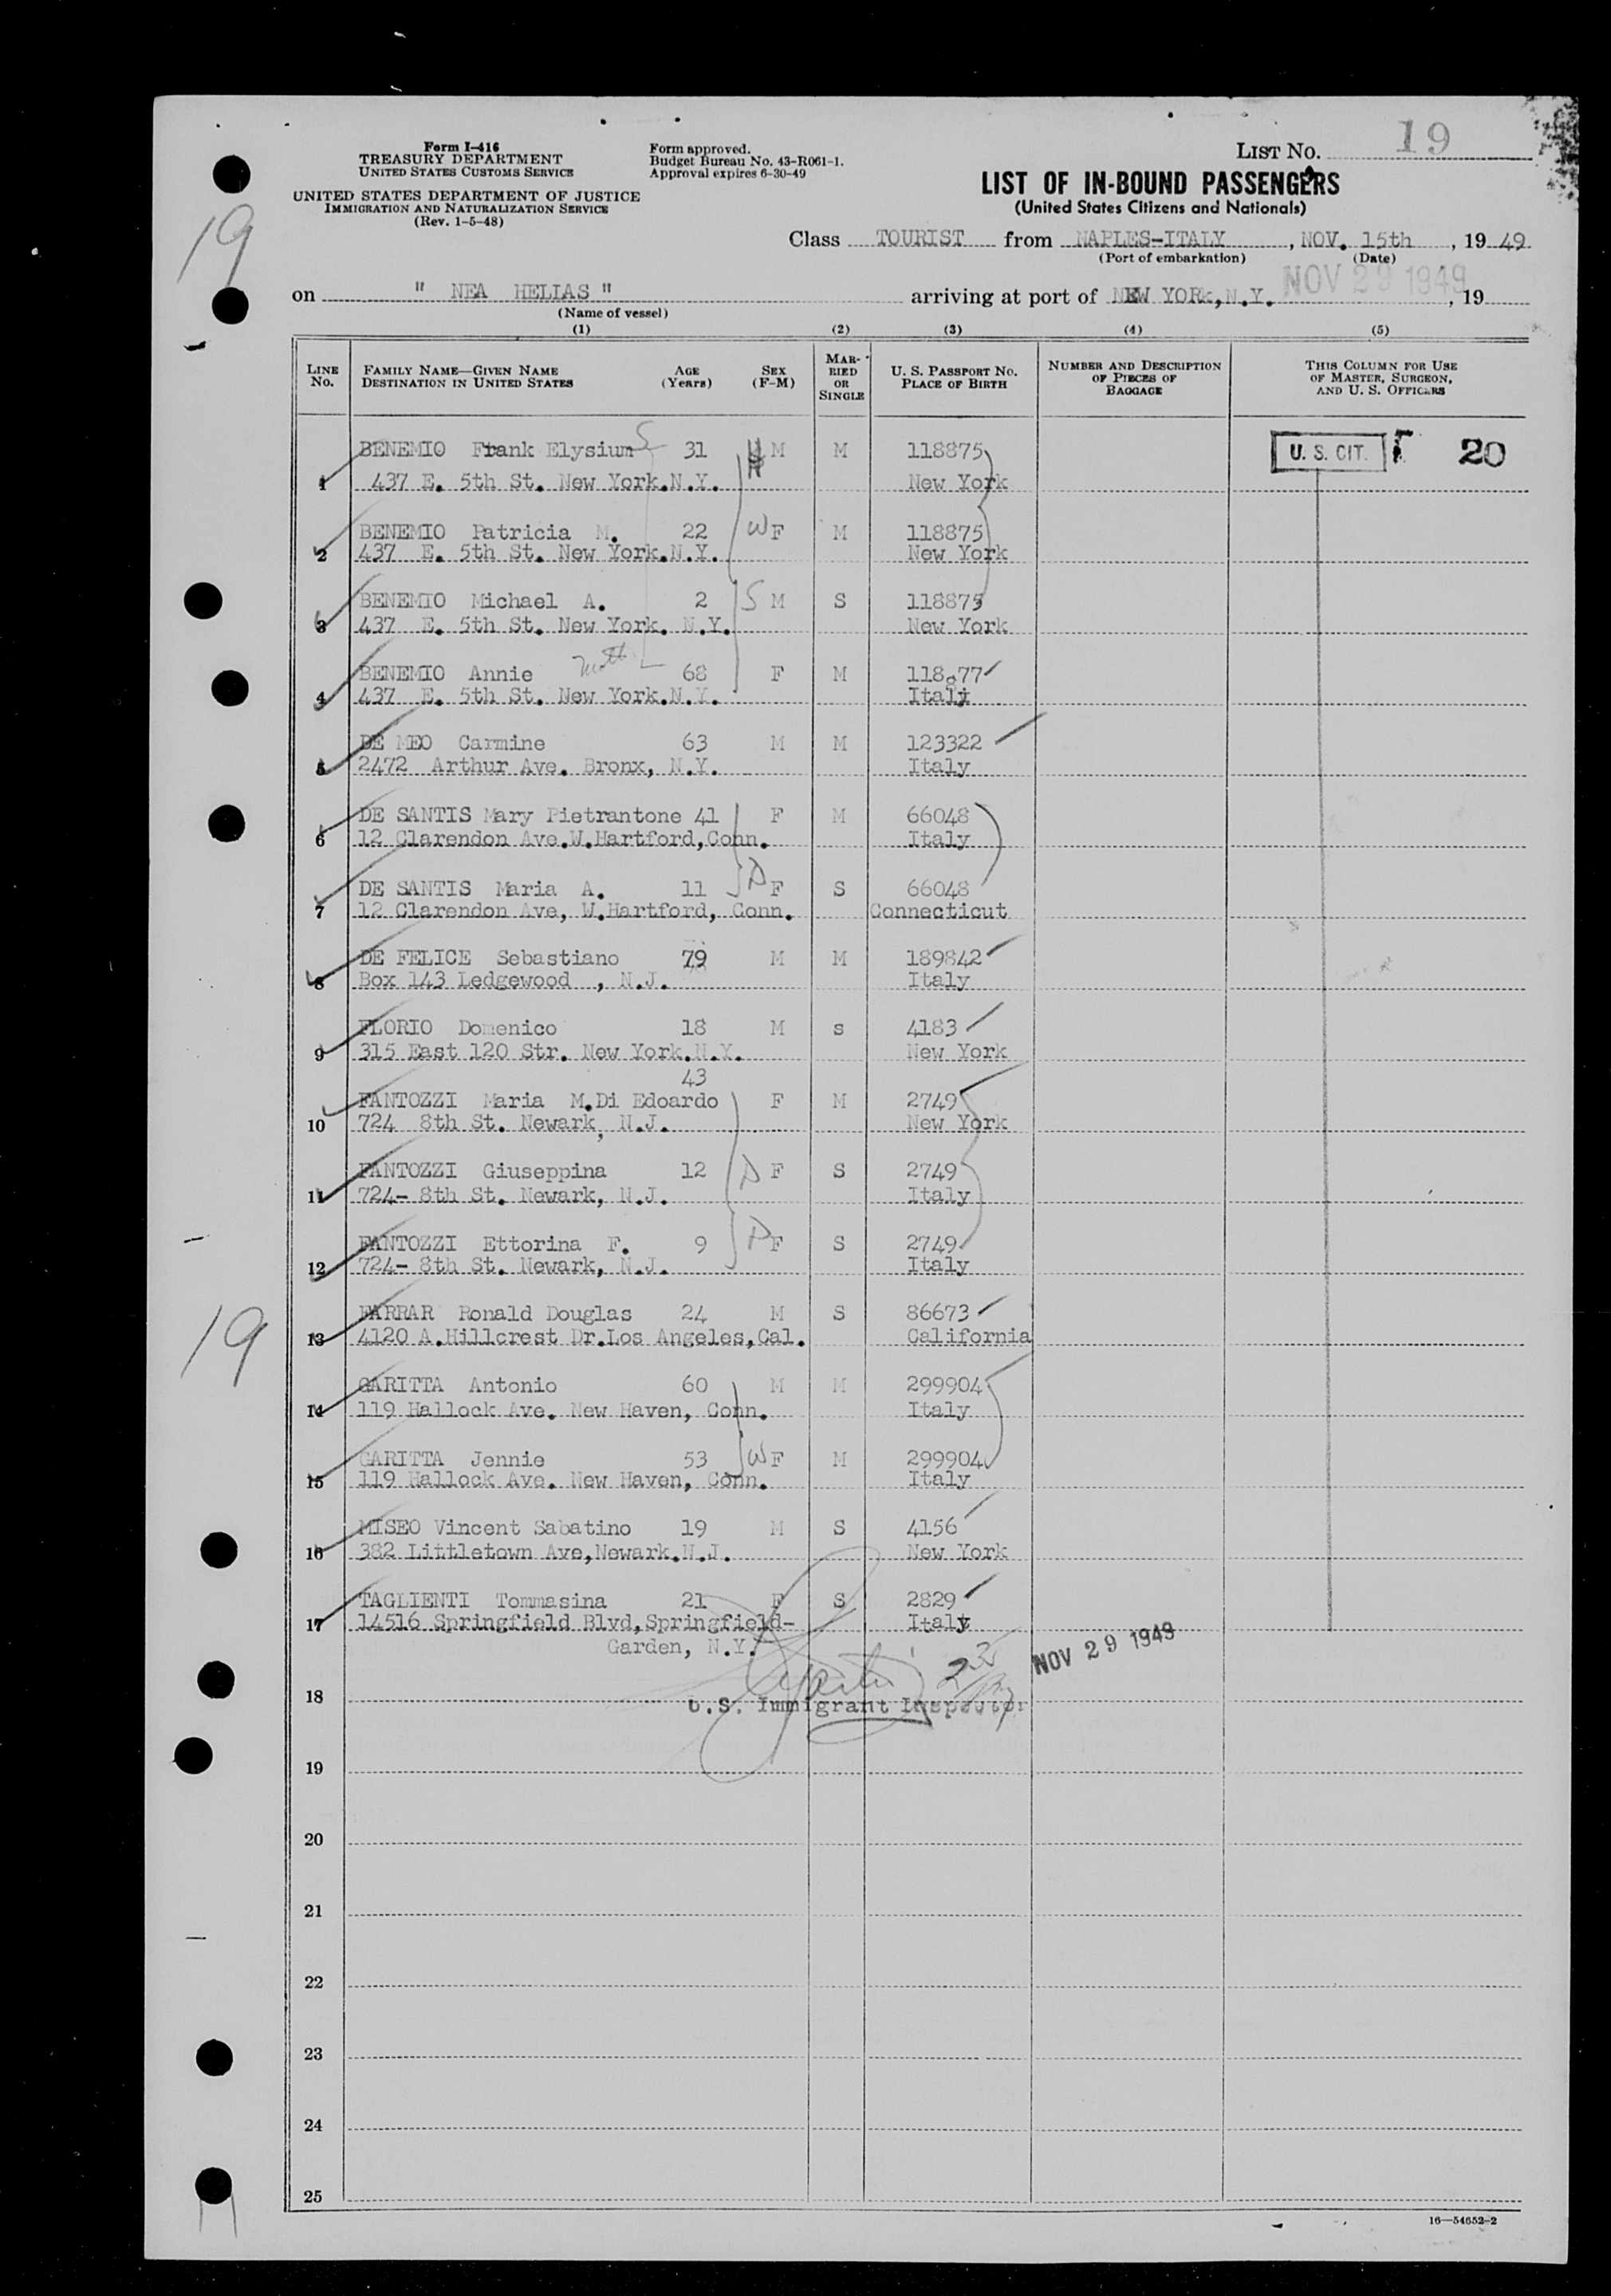 Form I-416
TREASURY DEPARTMENT
UNITED STATES CUSTOMS SERVICE
UNITED STATES DEPARTMENT OF JUSTICE
IMMIGRATION AND NATURALIZATION SERVICE
(Rev. 1-5-48)
Form approved.
Budget Bureau No. 43-R061-1.
Approval expires 6-30-49
LIST No. 19
LIST OF IN-BOUND PASSENGERS
(United States Citizens and Nationals)
19
Class TOURIST from NAPLES-ITALY, NOV. 15th, 19 49
(Port of embarkation) (Date)
on " NEA HELIAS " arriving at port of NEW YORK, N.Y. NOV 29 1949, 19
(Name of vessel)
(1) (2) (3) (4) (5)
LINE No. FAMILY NAME—GIVEN NAME DESTINATION IN UNITED STATES AGE (Years) SEX (F-M) MARRIED OR SINGLE U. S. PASSPORT No. PLACE OF BIRTH NUMBER AND DESCRIPTION OF PIECES OF BAGGAGE THIS COLUMN FOR USE OF MASTER, SURGEON, AND U. S. OFFICERS
BENEMIO Frank Elysium S 31 H M M 118875 U. S. CIT. 20
1 437 E. 5th St. New York.N.Y. New York
BENEMIO Patricia M. 22 W F M 118875
2 437 E. 5th St. New York.N.Y. New York
BENEMIO Michael A. 2 S M S 118875
3 437 E. 5th St. New York. N.Y. New York
BENEMIO Annie 68 F M 118877
4 437 E. 5th St. New York.N.Y. Italy
DE MEO Carmine 63 M M 123322
5 2472 Arthur Ave. Bronx, N.Y. Italy
DE SANTIS Mary Pietrantone 41 F M 66048
6 12 Clarendon Ave.W.Hartford,Conn. Italy
DE SANTIS Maria A. 11 D F S 66048
7 12 Clarendon Ave, W.Hartford, Conn. Connecticut
DE FELICE Sebastiano 79 M M 189842
8 Box 143 Ledgewood , N.J. Italy
FLORIO Domenico 18 M s 4183
9 315 East 120 Str. New York.N.Y. New York
43
FANTOZZI Maria M.Di Edoardo F M 2749
10 724 8th St. Newark, N.J. New York
FANTOZZI Giuseppina 12 D F S 2749
11 724- 8th St. Newark, N.J. Italy
FANTOZZI Ettorina F. 9 D F S 2749
12 724- 8th St. Newark, N.J. Italy
19
FARRAR Ronald Douglas 24 M S 86673
13 4120 A.Hillcrest Dr.Los Angeles,Cal. California
GARITTA Antonio 60 M M 299904
14 119 Hallock Ave. New Haven, Conn. Italy
GARITTA Jennie 53 W F M 299904
15 119 Hallock Ave. New Haven, Conn. Italy
MISEO Vincent Sabatino 19 M S 4156
16 382 Littletown Ave,Newark.N.J. New York
TAGLIENTI Tommasina 21 F S 2829
17 14516 Springfield Blvd,Springfield- Italy
Garden, N.Y. NOV 29 1949
18 U.S. Immigrant Inspector
19
20
21
22
23
24
25
16—54652-2